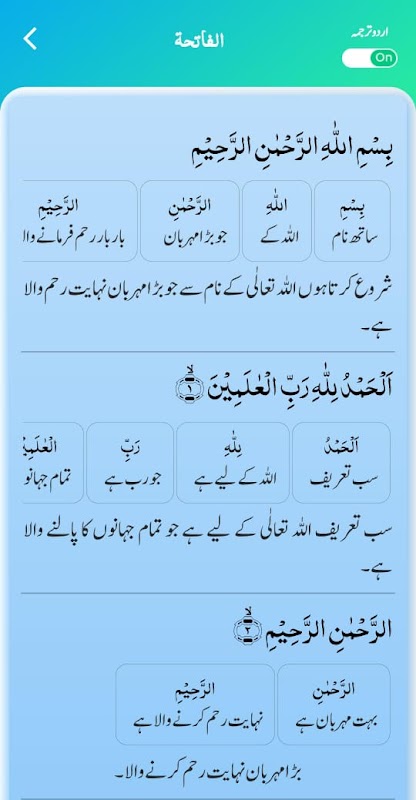 اردو ترجمہ
الفاتحة
On
بِسْمِ اللّٰهِ الرَّحْمٰنِ الرَّحِيْمِ
بِسْمِ اللّٰهِ الرَّحْمٰنِ الرَّحِيْمِ
ساتھ نام اللہ کے جو بڑا مہربان بار بار رحم فرمانے والا
شروع کرتا ہوں اللہ تعالٰی کے نام سے جو بڑا مہربان نہایت رحم والا
ہے۔
اَلْحَمْدُ لِلّٰهِ رَبِّ الْعٰلَمِيْنَ ۙ‏﴿۱﴾
اَلْحَمْدُ لِلّٰهِ رَبِّ الْعٰلَمِيْ
سب تعریف اللہ کے لیے ہے جو رب ہے تمام جہانوں
سب تعریف اللہ تعالٰی کے لیے ہے جو تمام جہانوں کا پالنے والا
ہے۔
الرَّحْمٰنِ الرَّحِيْمِ ۙ‏﴿۲﴾
الرَّحْمٰنِ الرَّحِيْمِ
بہت مہربان ہے نہایت رحم کرنے والا ہے
بڑا مہربان نہایت رحم کرنے والا۔